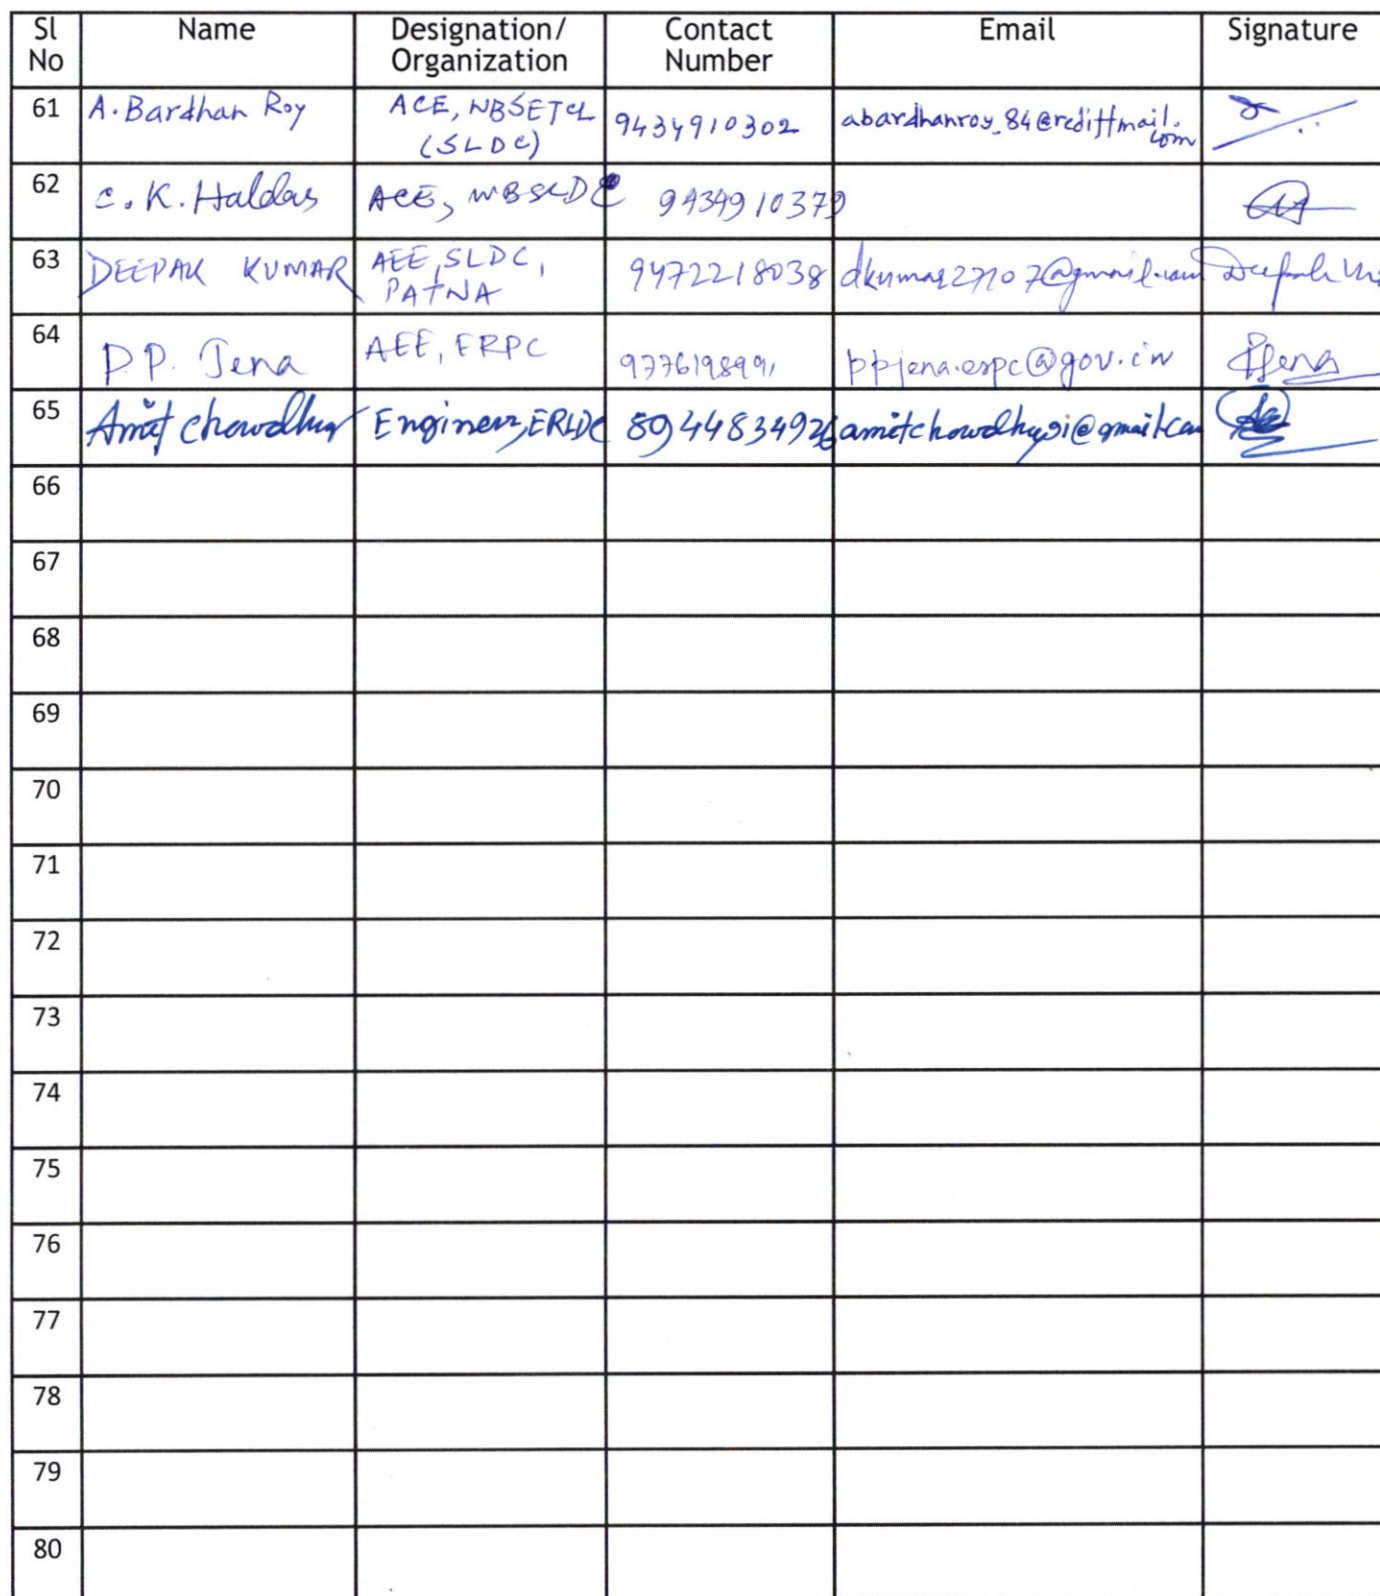 Sl No Name Designation/ Organization Contact Number Email Signature
61 A. Bardhan Roy ACE, WBSETCL (SLDC) 9434910302 abardhanroy_84@rediffmail.com
62 C. K. Haldar ACE, WBSLDC 9434910379
63 DEEPAK KUMAR AEE, SLDC, PATNA 9472218038 dkumar27107@gmail.com Deepak
64 P.P. Jena AEE, ERPC 9776198991 ppjena.erpc@gov.in PJena
65 Amit Chowdhury Engineer, ERLDC 8944834926 amitchowdhuri@gmail.com
66
67
68
69
70
71
72
73
74
75
76
77
78
79
80